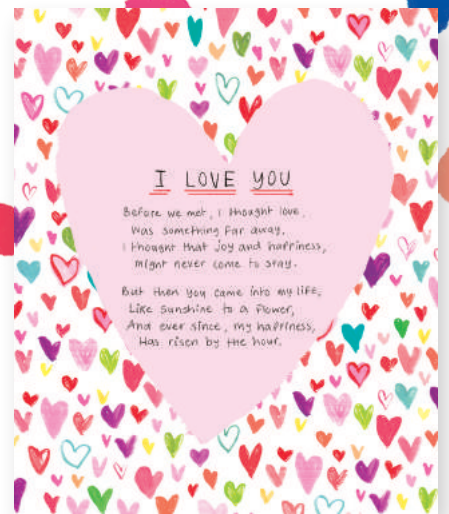 I LOVE YOU
Before we met, I thought love,
Was something far away,
I thought that joy and happiness,
might never come to stay.
But then you came into my life,
Like sunshine to a flower,
And ever since, my happiness,
Has risen by the hour.